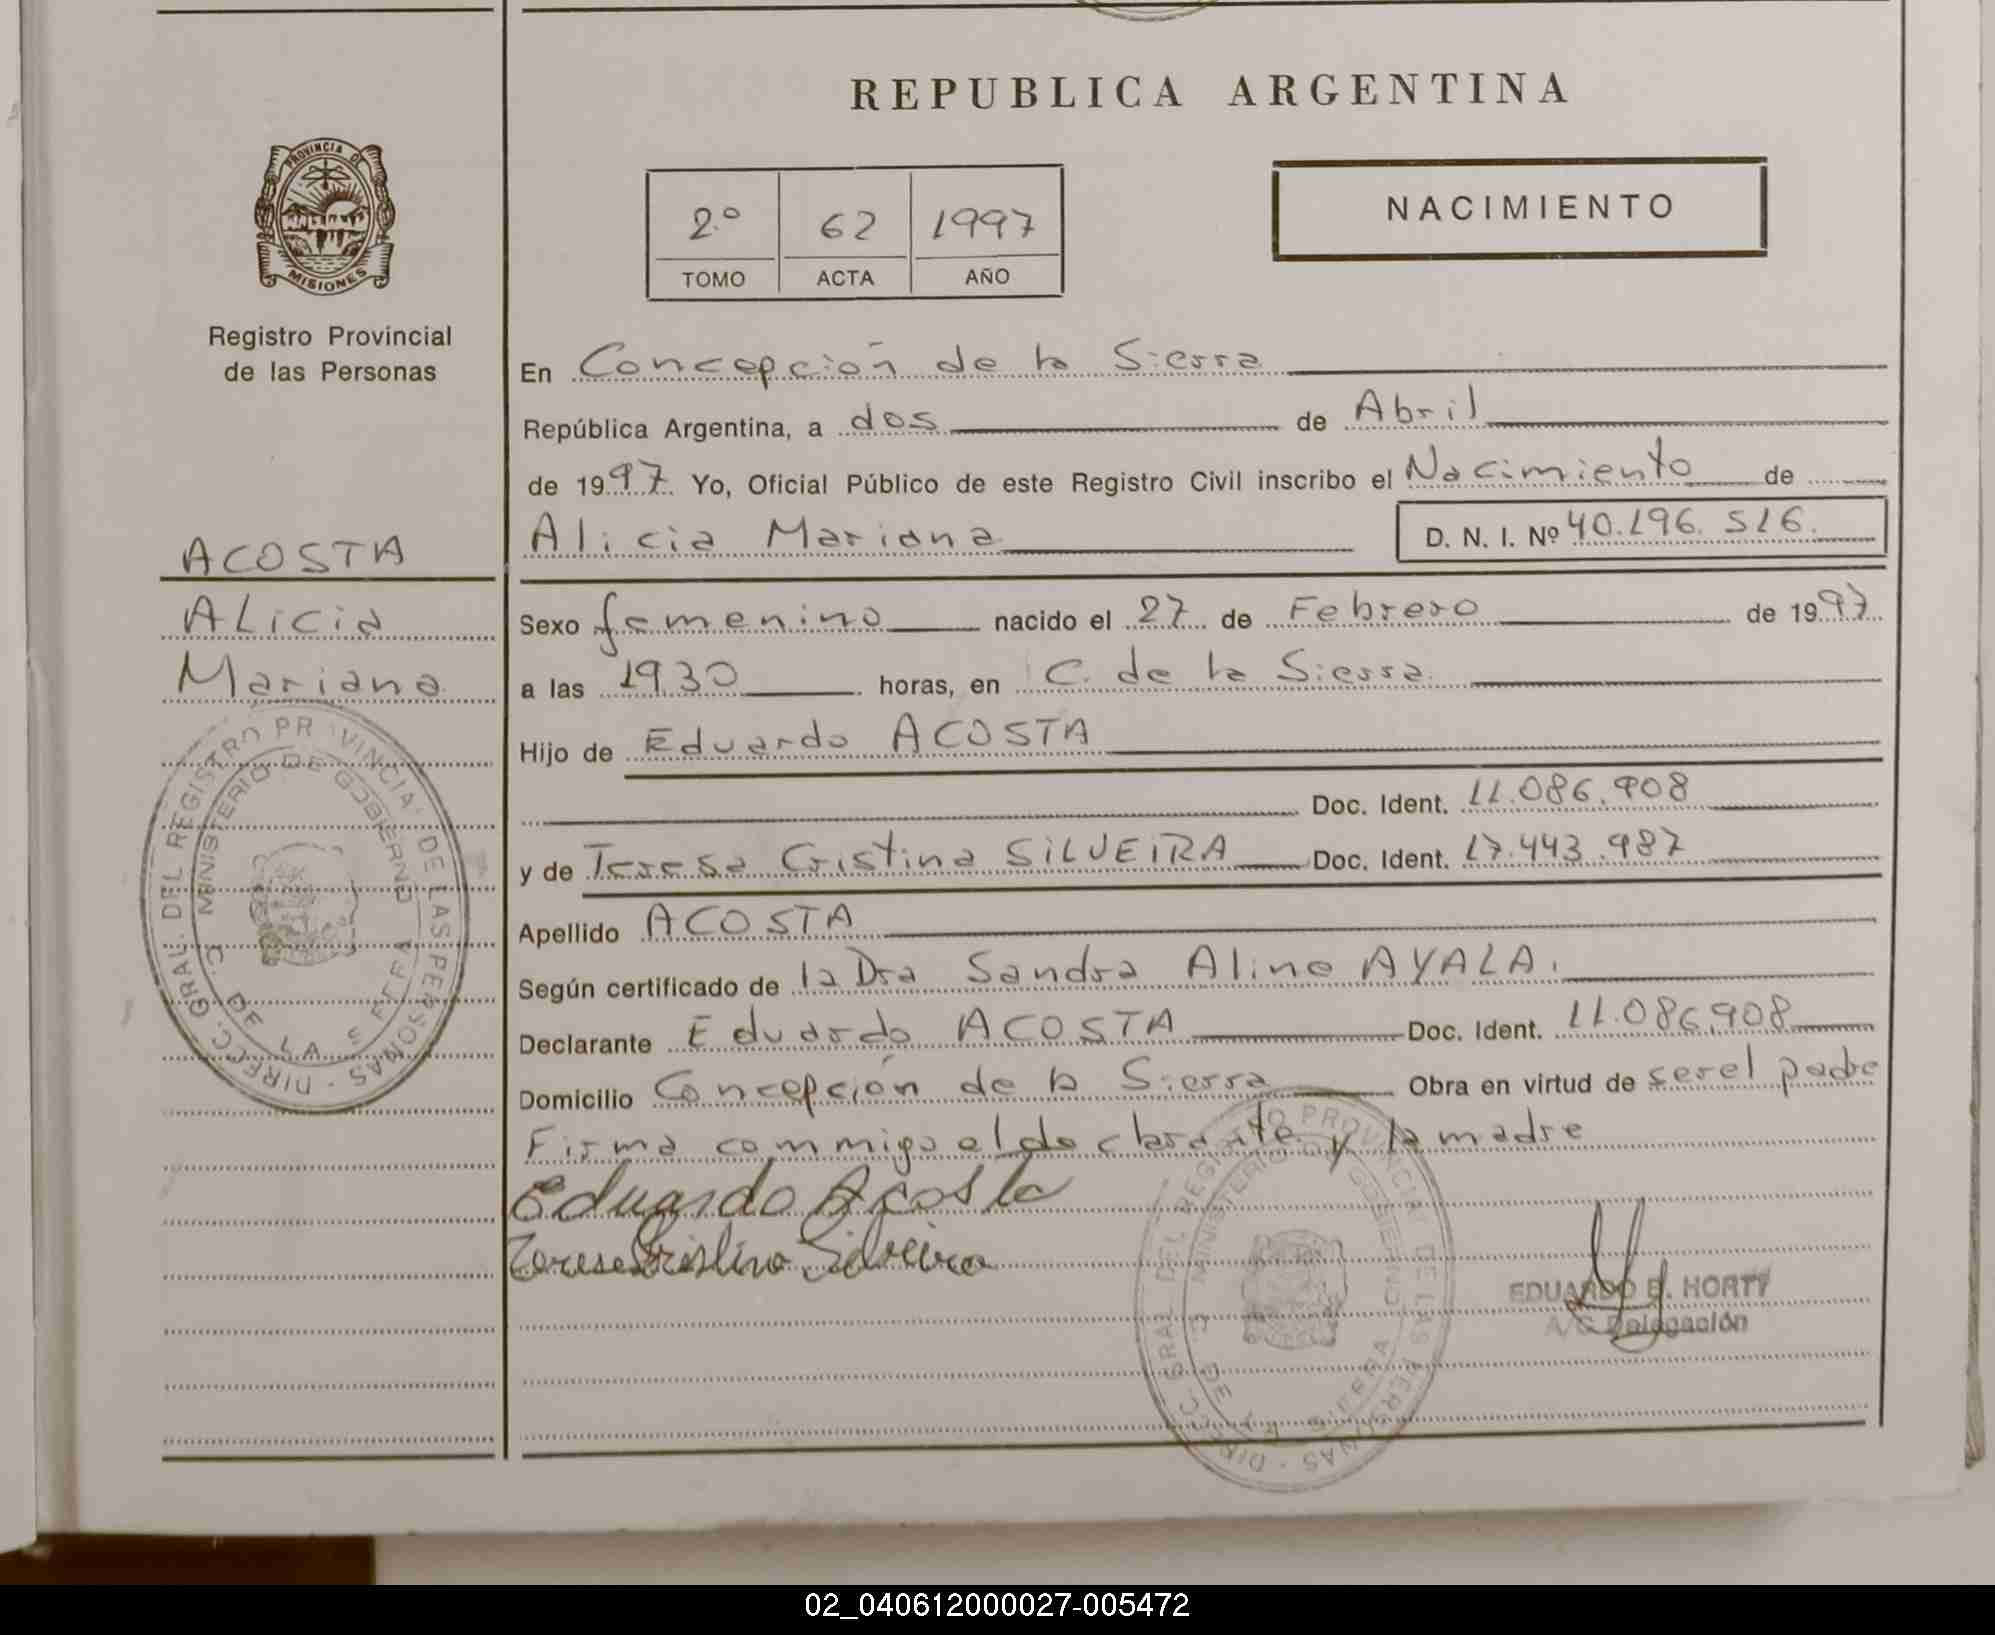 REPUBLICA ARGENTINA
PROVINCIA DE
MISIONES
Registro Provincial
de las Personas
2º 62 1997
TOMO ACTA AÑO
NACIMIENTO
En Concepción de la Sierra
República Argentina, a dos de Abril
de 1997. Yo, Oficial Público de este Registro Civil inscribo el Nacimiento de
Alicia Mariana D. N. I. Nº 40.196.516.
ACOSTA
Alicia
Mariana
Sexo femenino nacido el 27 de Febrero de 1997
a las 1930 horas, en C. de la Sierra
Hijo de Eduardo ACOSTA
Doc. Ident. 11.086.908
y de Teresa Cristina SILVEIRA Doc. Ident. 17.443.987
Apellido ACOSTA
Según certificado de la Dra Sandra Alino AYALA.
Declarante Eduardo ACOSTA Doc. Ident. 11.086.908
Domicilio Concepción de la Sierra Obra en virtud de ser el padre
Firma commigo el declarante y la madre
Eduardo Acosta
Teresa Cristina Silveira
EDUARDO E. HORTY
A/C Delegación
DIRECC. GRAL. DEL REGISTRO PROVINCIAL DE LAS PERSONAS
MINISTERIO DE GOBIERNO
C. DE LA SIERRA
DIRECC. GRAL. DEL REGISTRO PROVINCIAL DE LAS PERSONAS
MINISTERIO DE GOBIERNO
C. DE LA SIERRA
02_040612000027-005472